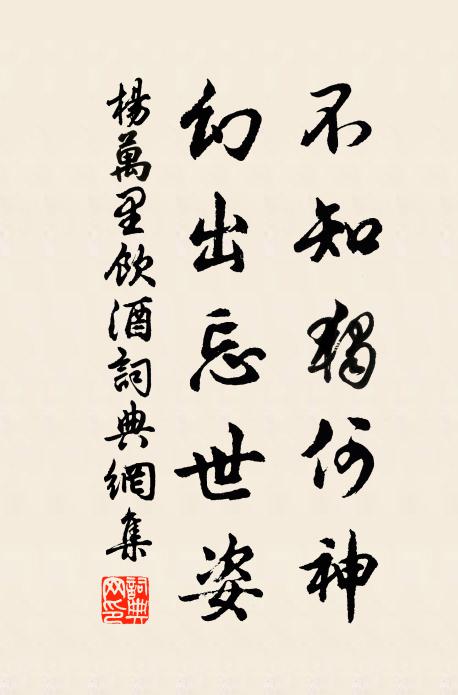 不知獨何神
幻出忘世姿
楊萬里飲酒詞典網集
詞典网印